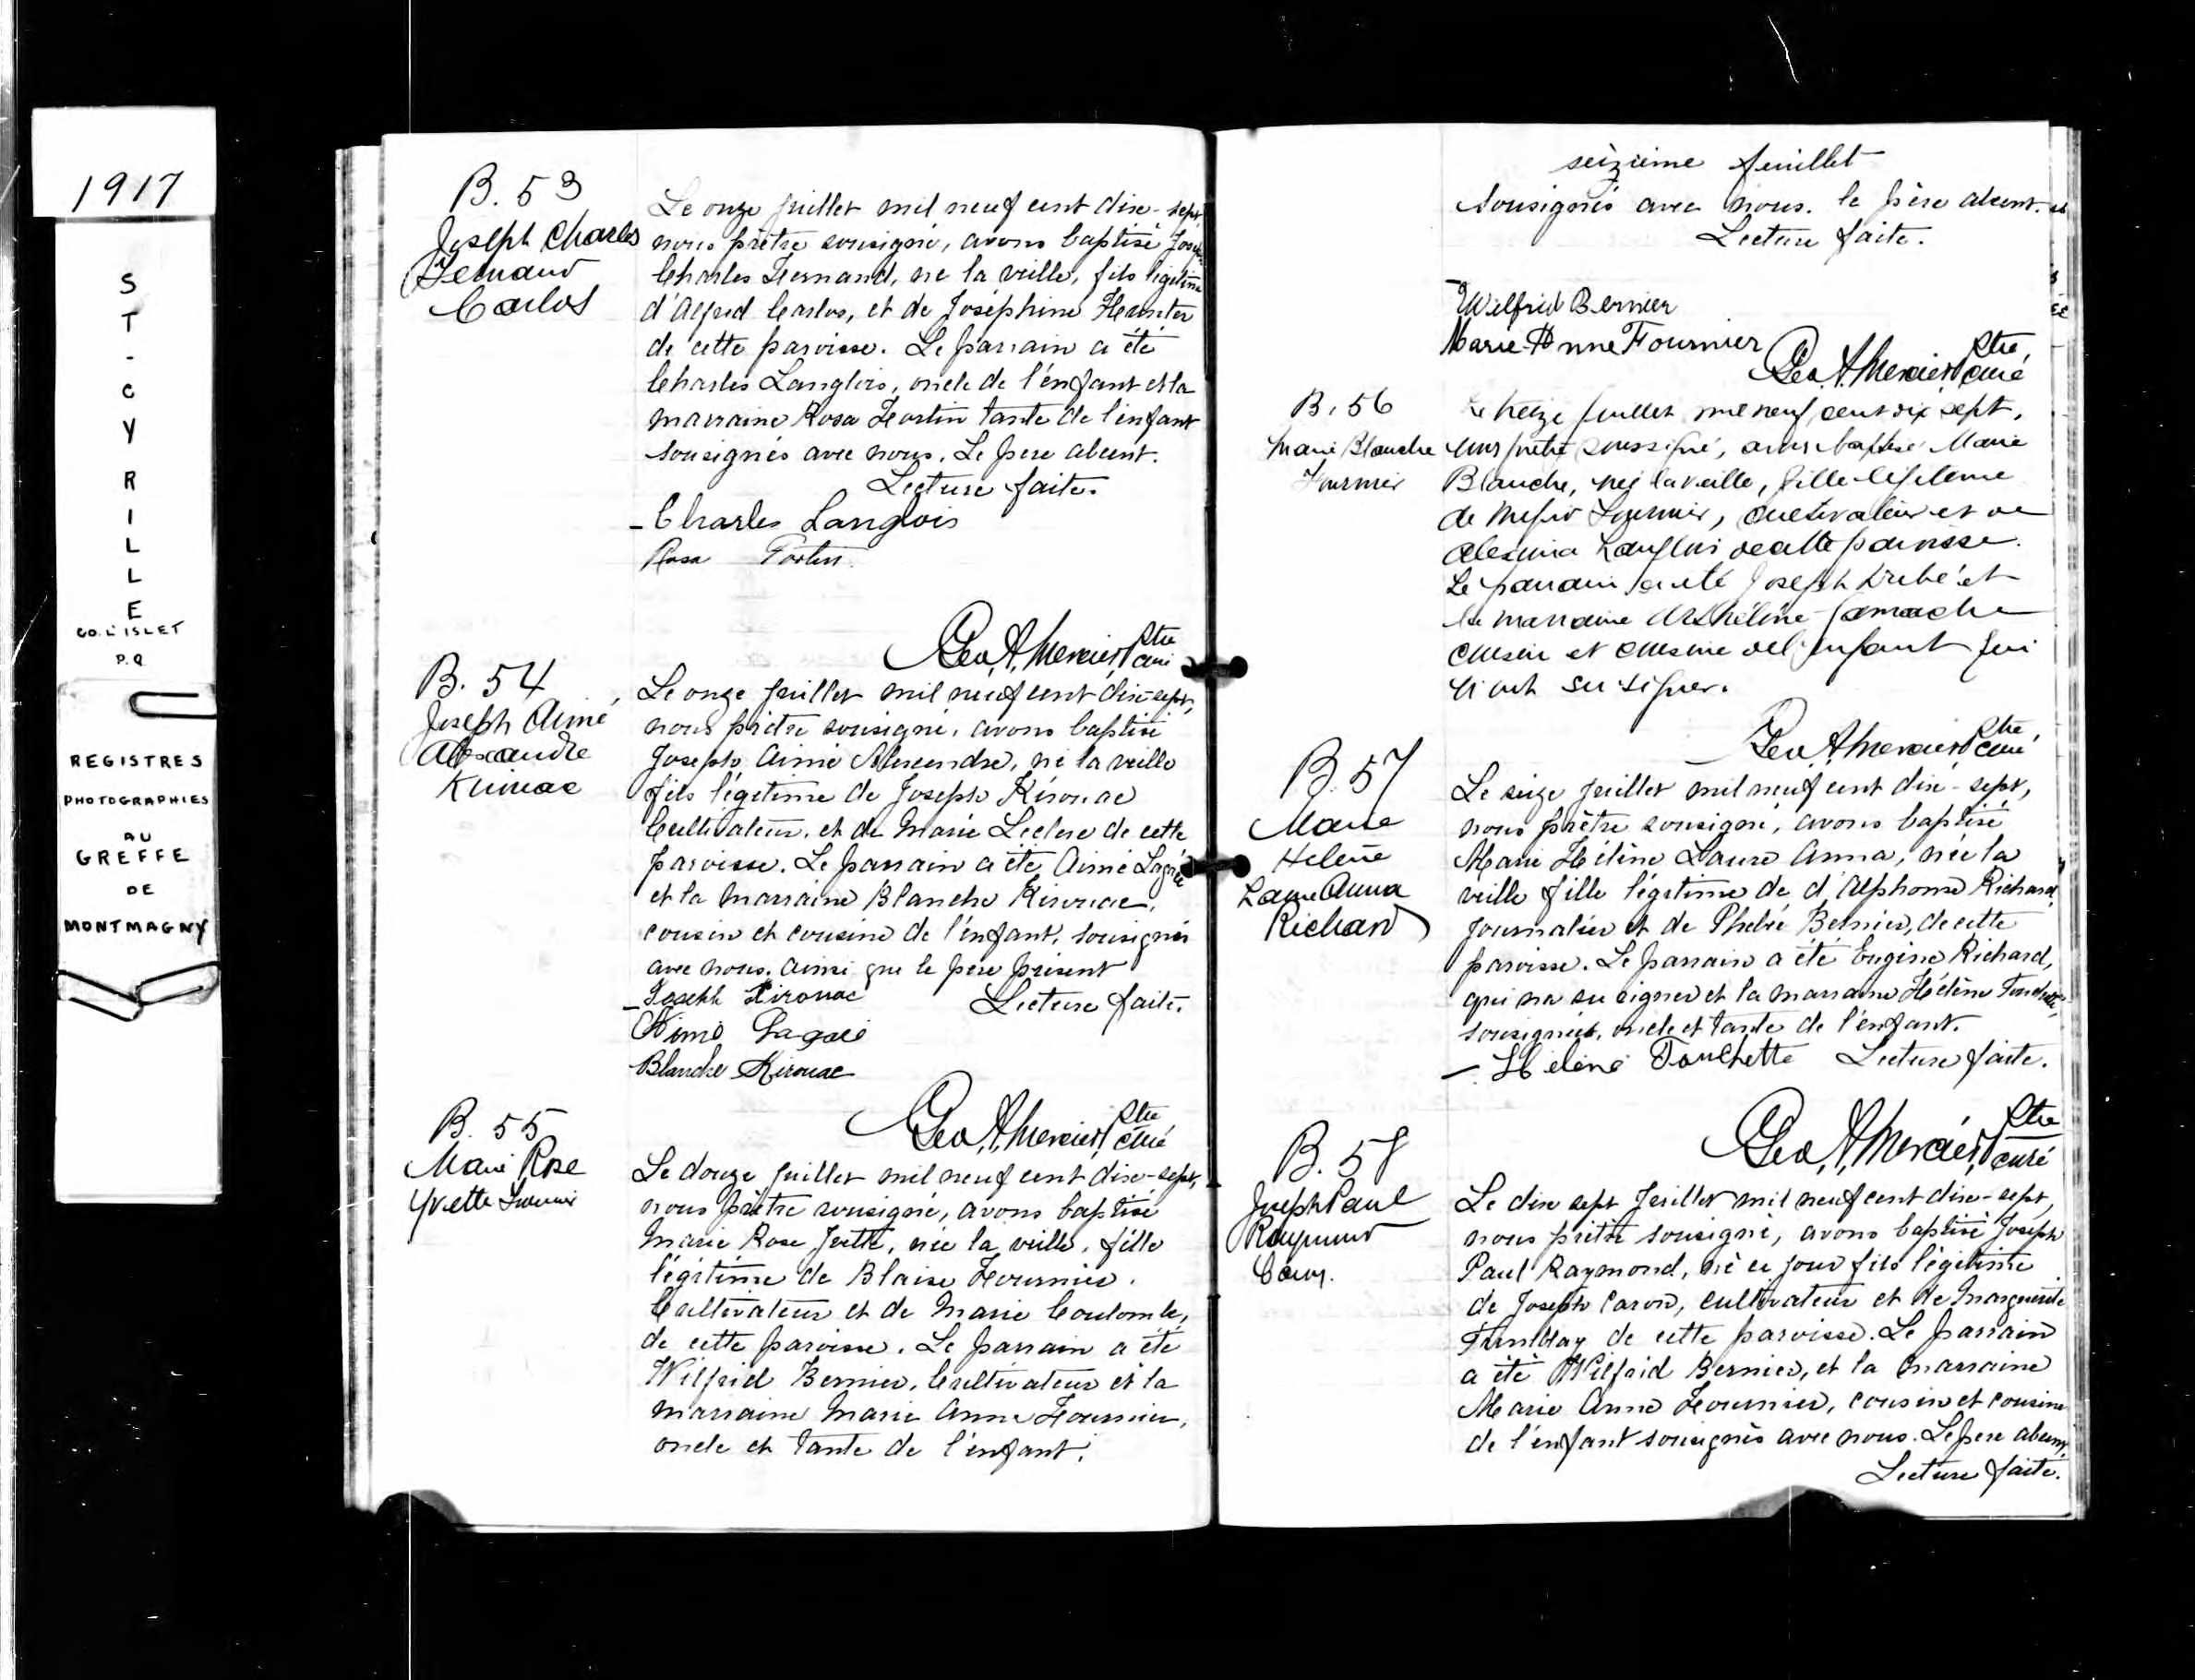 1917
ST-CYRILLE
CO. L'ISLET
P.Q
REGISTRES
PHOTOGRAPHIES
AU
GREFFE
DE
MONTMAGNY
B. 53
Joseph Charles
Fernand
Carlos
Le onze juillet mil neuf cent dix-sept
nous prêtre sousigné, avons baptisé Joseph
Charles Fernand, né la veille, fils légitime
d'Alfred Carlos, et de Joséphine
de cette paroisse. Le parrain a été
Charles Langlois, oncle de l'enfant et la
marraine Rosa Fortin tante de l'enfant
sousignés avec nous. Le père absent.
Lecture faite.
Charles Langlois
Rosa Fortin
Geo. A. Mercier Ptre
curé
B. 54
Joseph Aimé
Alexandre
Kirouac
Le onze juillet mil neuf cent dix-sept,
nous prêtre sousigné, avons baptisé
Joseph Aimé Alexandre, né la veille
fils légitime de Joseph Kirouac
Cultivateur, et de Marie Leclerc de cette
paroisse. Le parrain a été Aimé Lagacé
et la marraine Blanche Kirouac,
cousin et cousine de l'enfant, sousignés
avec nous, ainsi que le père présent
Joseph Kirouac Lecture faite.
Aimé Lagacé
Blanche Kirouac
Geo. A. Mercier Ptre
curé
B. 55
Marie Rose
Yvette Fournier
Le douze juillet mil neuf cent dix-sept,
nous prêtre sousigné, avons baptisé
Marie Rose née la veille, fille
légitime de Blaise Fournier,
Cultivateur et de Marie Coulombe,
de cette paroisse. Le parrain a été
Wilfrid Bernier, Cultivateur et la
marraine Marie Anne Fournier,
oncle et tante de l'enfant.
seizième feuillet
sousignés avec nous. le père absent.
Lecture faite.
Wilfrid Bernier
Marie-Anne Fournier
Geo. A. Mercier Ptre,
curé
B. 56
Marie Blanche
Fournier
Le treize juillet mil neuf cent dix sept,
nous prêtre soussigné, avons baptisé Marie
Blanche, née la veille, fille légitime
de Fournier, cultivateur et de
Langlois de cette paroisse.
Le parrain a été Joseph Dubé et
la marraine Gamache
cousin et cousine de l'enfant qui
n'ont su signer.
Geo. A. Mercier Ptre,
curé
B. 57
Marie
Helene
Laure Anna
Richard
Le seize juillet mil neuf cent dix-sept,
nous prêtre sousigné, avons baptisé
Marie Hélène Laure Anna, née la
veille fille légitime de d'Alphonse Richard,
journalier et de Phebée Bernier, de cette
paroisse. Le parrain a été Eugène Richard,
qui n'a su signer et la marraine Hélène Touchette
sousignée, oncle et tante de l'enfant.
Hélène Touchette Lecture faite.
Geo. A. Mercier Ptre
curé
B. 58
Joseph Paul
Raymond
Caron.
Le dix sept Juillet mil neuf cent dix-sept,
nous prêtre sousigné, avons baptisé Joseph
Paul Raymond, né ce jour fils légitime
de Joseph Caron, cultivateur et de Marguerite
Tremblay de cette paroisse. Le parrain
a été Wilfrid Bernier, et la marraine
Marie Anne Fournier, cousin et cousine
de l'enfant sousignés avec nous. Le père absent,
Lecture faite.